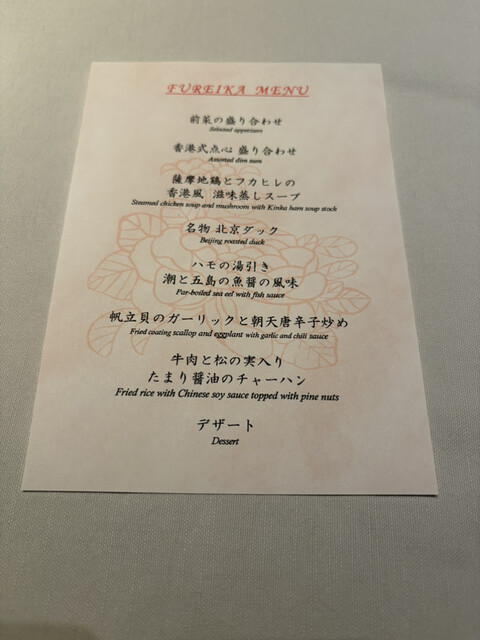 FUREIKA MENU
前菜の盛り合わせ
Selected appetizers
香港式点心 盛り合わせ
Assorted dim sum
薩摩地鶏とフカヒレの
香港風 滋味蒸しスープ
Steamed chicken soup and mushroom with Kinka ham soup stock
名物 北京ダック
Beijing roasted duck
ハモの湯引き
潮と五島の魚醤の風味
Par-boiled sea eel with fish sauce
帆立貝のガーリックと朝天唐辛子炒め
Fried coating scallop and eggplant with garlic and chili sauce
牛肉と松の実入り
たまり醤油のチャーハン
Fried rice with Chinese soy sauce topped with pine nuts
デザート
Dessert